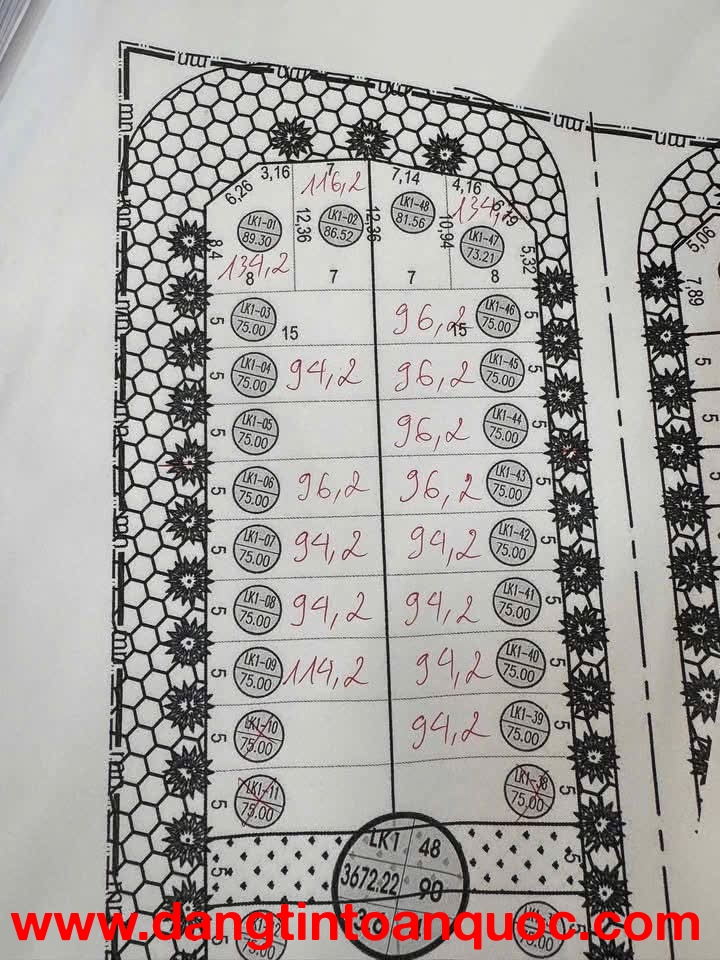 3,16 7 7,14 4,16
6,26 116,2 134,
LK1-01 89.30 12.36 LK1-02 86.52 12.36 LK1-48 81.56 10.94 LK1-47 73.21 5,32
8,4 134,2
8 7 7 8
5 LK1-03 75.00 15 96,2 15 LK1-46 75.00 5
5 LK1-04 75.00 94,2 96,2 LK1-45 75.00 5
5 LK1-05 75.00 96,2 LK1-44 75.00 5
5 LK1-06 75.00 96,2 96,2 LK1-43 75.00 5
5 LK1-07 75.00 94,2 94,2 LK1-42 75.00 5
5 LK1-08 75.00 94,2 94,2 LK1-41 75.00 5
5 LK1-09 75.00 114,2 94,2 LK1-40 75.00 5
5 LK1-10 75.00 94,2 LK1-39 75.00 5
5 LK1-11 75.00 LK1-38 75.00 5
LK1 48
5 3672.22 90 5
5,06
7,89
5
5
www.dangtintoanquoc.com